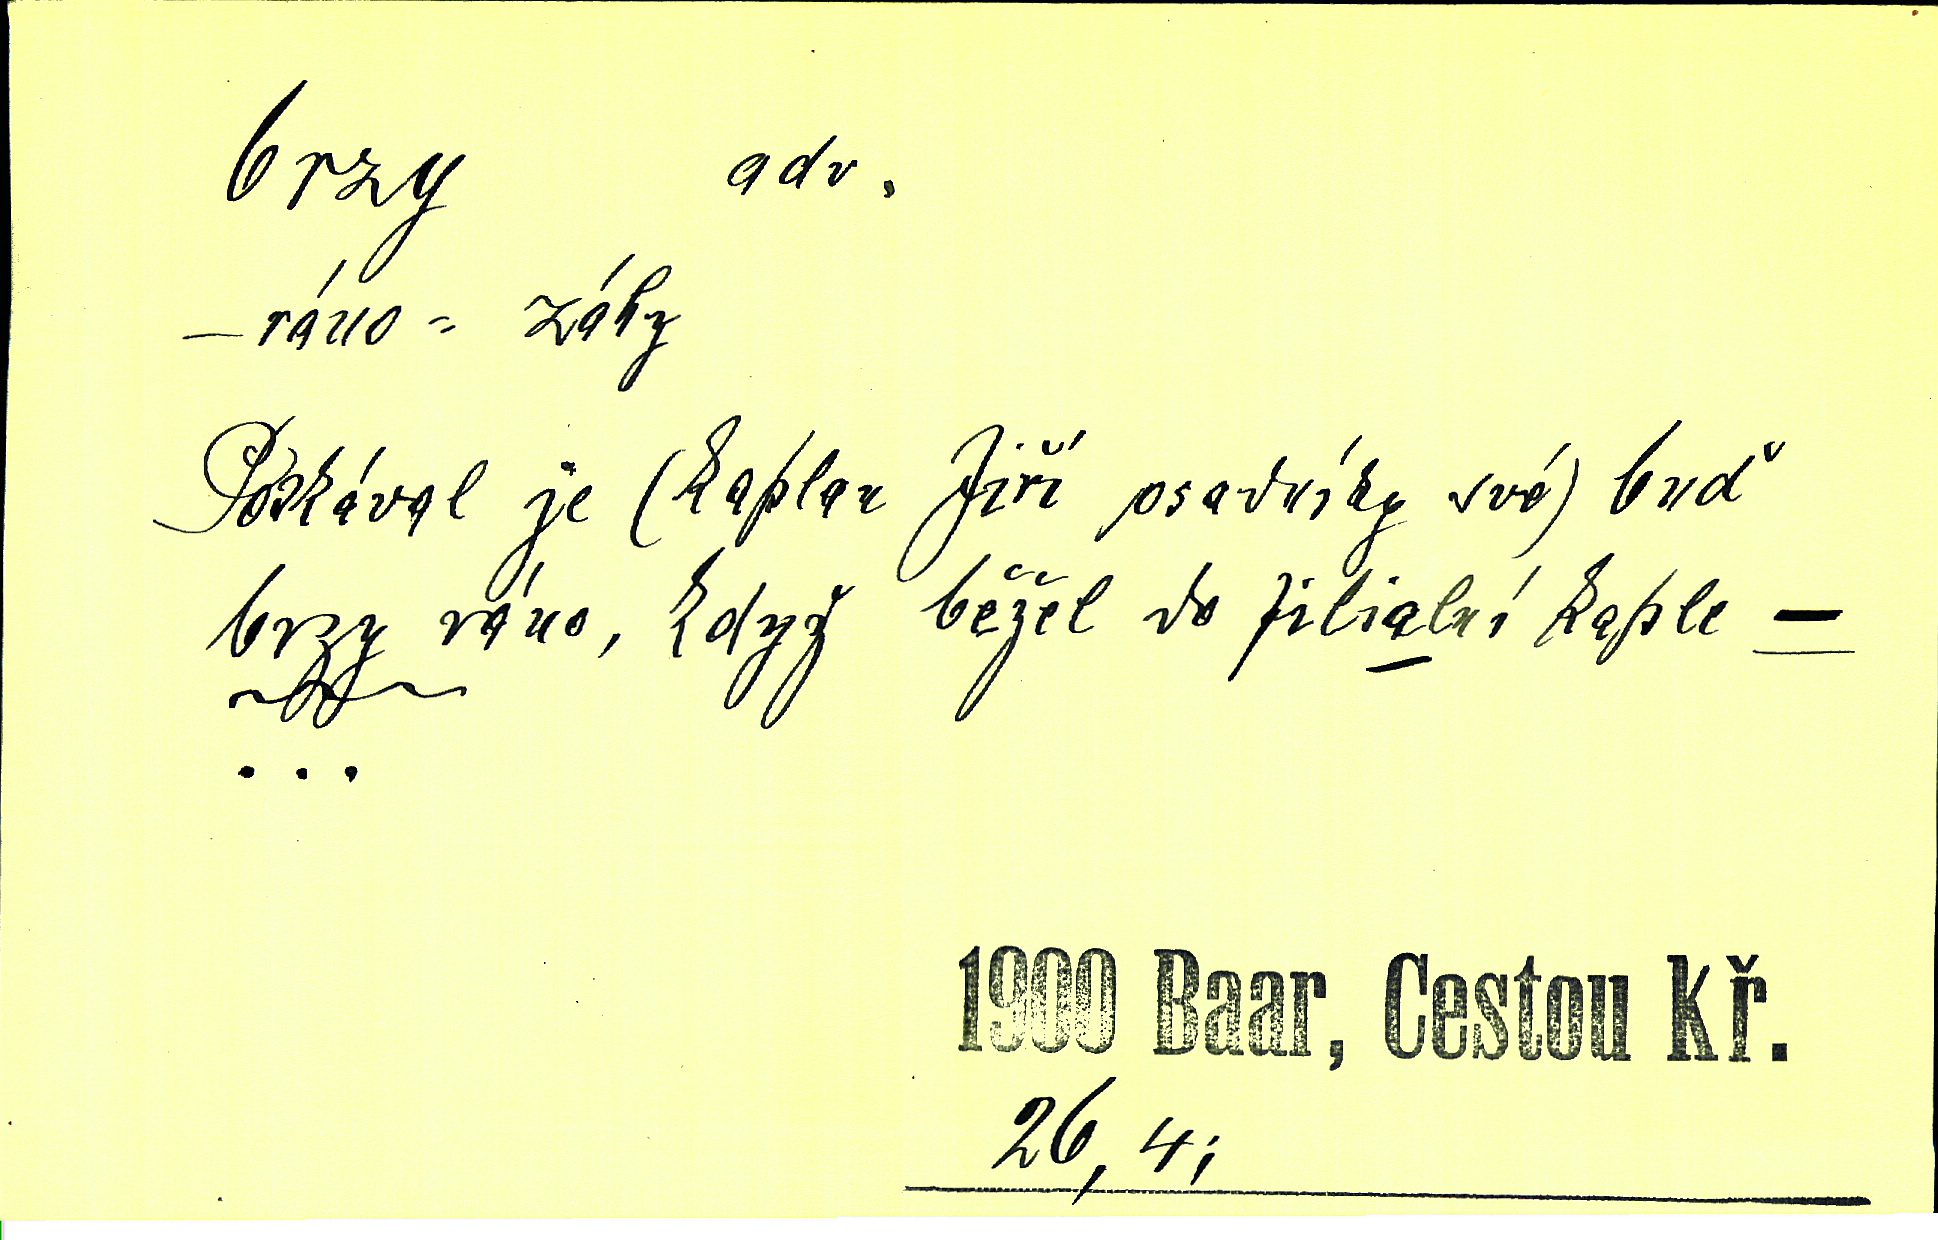 brzy adv.
– ráno = záhy
Potkával je (kaplan Jiří osadníky své) buď
brzy ráno, když běžel do filialní kaple —
...
1900 Baar, Cestou Kř.
26, 4;